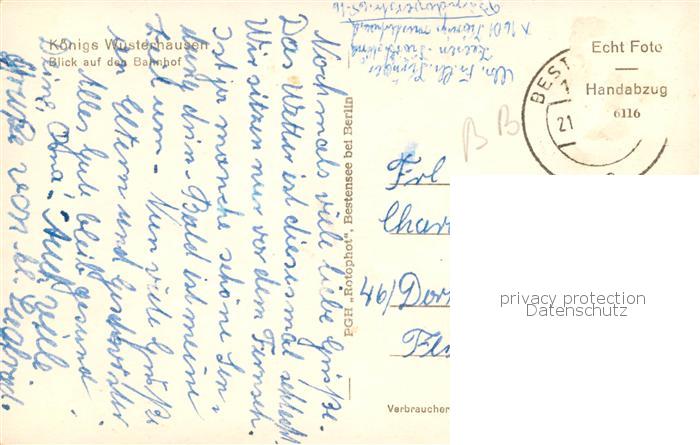 Königs Wusterhausen
Blick auf den Bahnhof
Nochmals viele liebe Grüße.
Das Wetter ist diesesmal schlecht
Wir sitzen nur vor dem Fernseh.
Ist ja manche schöne Sen=
dung drin. Bald ist meine
Zeit um. Nun viele Grüße
an Eltern und Geschwister
Alles Gute bleib gesund
Deine Oma. Auch viele
Grüße von
PGH „Rotophot", Bestensee bei Berlin
Echt Foto
Handabzug
6116
BEST
21
B B
Frl
Char
46/Dor
privacy protection
Datenschutz
Verbraucher